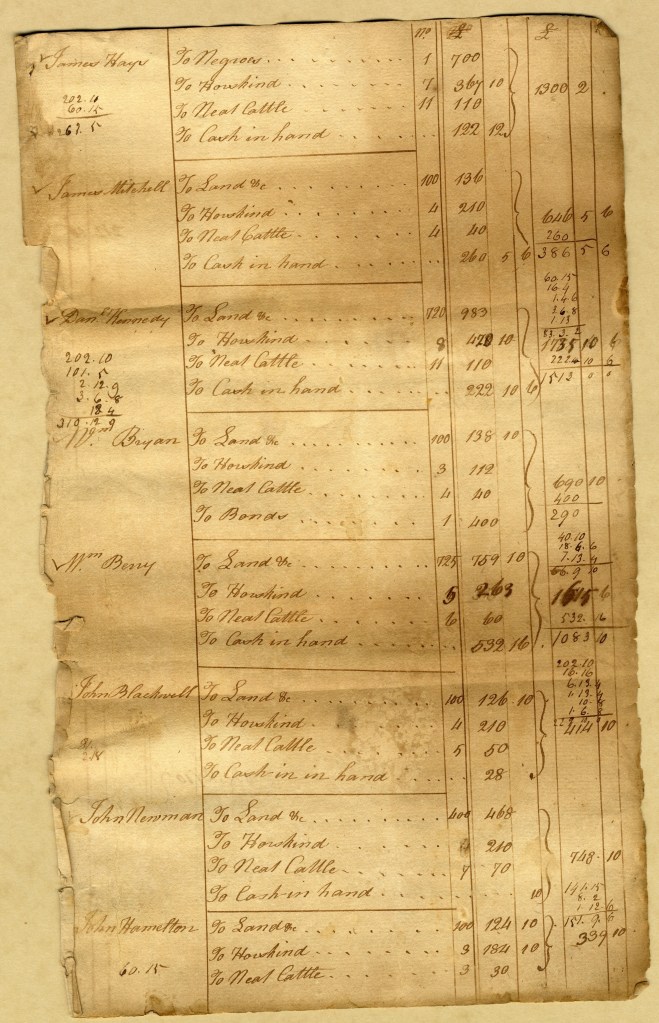 No £ £
James Hays To Negroes 1 700
To Horskind 7 367 10 1300 2
202.10 To Neat Cattle 11 110
60.15
To Cash in hand 122 12
James Mitchell To Land &c 100 136
To Horskind 4 210 646 5 6
To Neat Cattle 4 40 260
To Cash in hand 260 5 6 386 5 6
60.15
16.4
1.4.6
3.6.8
1.13
83.3.2
Danl Kennedy To Land &c 720 983
To Horskind 8 420 10 1735 10 6
202.10 To Neat Cattle 11 110 222 10 6
101.5 To Cash in hand 222 10 6 1513 0 0
2.12.9
3.6.8
18.4
310.12.9
Wm Bryan To Land &c 100 138 10
To Horskind 3 112
To Neat Cattle 4 40 690 10
400
To Bonds 1 400 290
40.10
18.6.6
7.13.4
66.9.10
Wm Berry To Land &c 725 759 10
To Horskind 5 263 1615 6
To Neat Cattle 6 60 532.16
To Cash in hand 532 16 1083 10
202.10
16.16
6.13.4
1.13.4
10.6
1.6.8
John Blackwell To Land &c 100 126 10
To Horskind 4 210 414 10
To Neat Cattle 5 50
To Cash in in hand 28
John Newman To Land &c 400 468
To Horskind 4 210
To Neat Cattle 7 70 748.10
To Cash in hand 10
141.15
8.2
1.12.6
151.9.6
John Hamelton To Land &c 100 124 10
To Horskind 3 184 10 339 10
60.15 To Neat Cattle 3 30